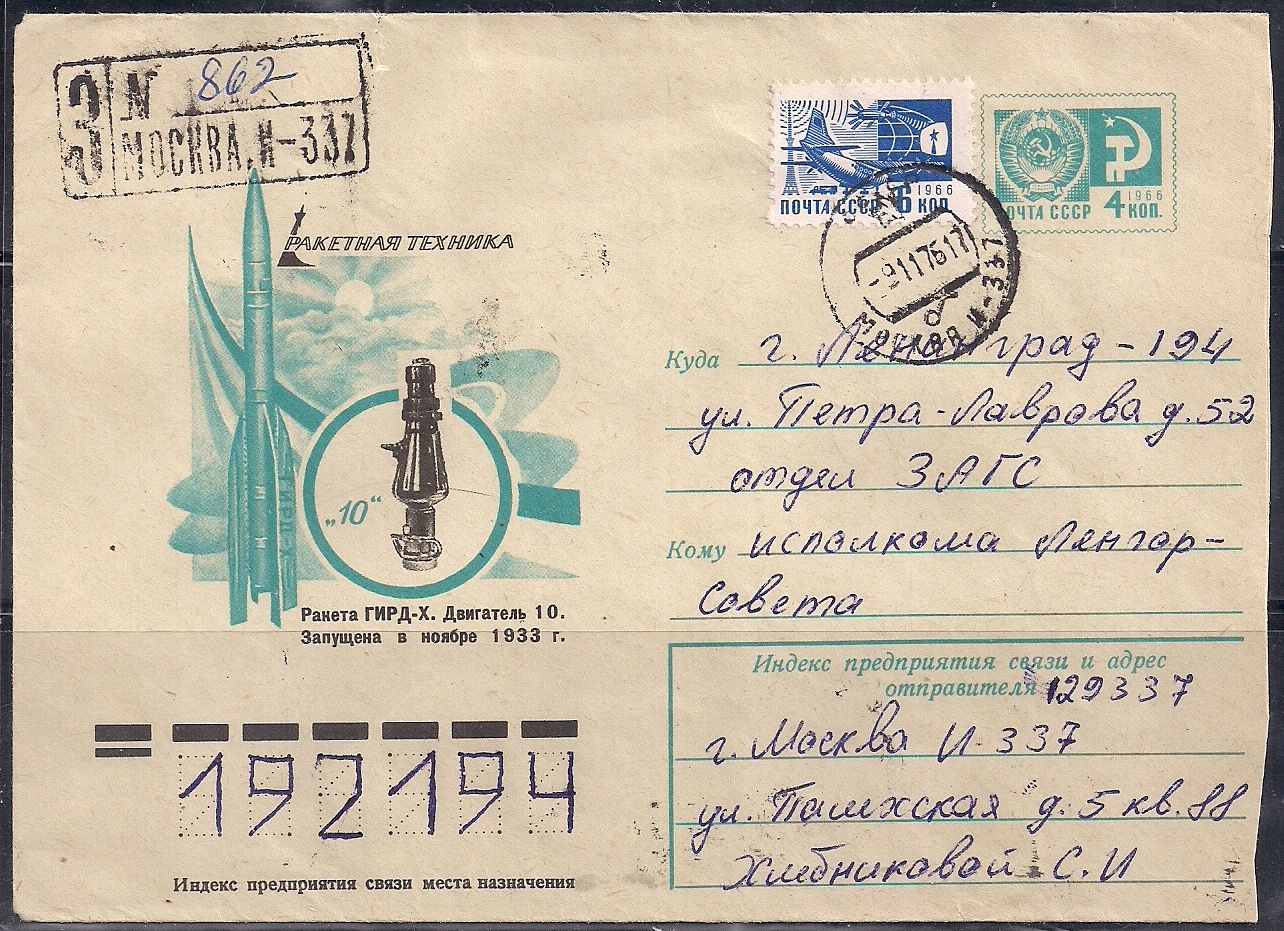 З N 862
МОСКВА, И-337
РАКЕТНАЯ ТЕХНИКА
ГИРД-Х
„10“
Ракета ГИРД-Х. Двигатель 10.
Запущена в ноябре 1933 г.
ПОЧТА СССР 6 КОП. 1966
ПОЧТА СССР 4 КОП. 1966
-9117617
МОСКВА И-337
Куда г. Ленинград-194
ул. Петра-Лаврова д.52
отдел ЗАГС
Кому исполкома Ленгор-
Совета
Индекс предприятия связи и адрес
отправителя 129337
г. Москва И-337
ул. Палехская д.5 кв.88
Хлебниковой С.И
192194
Индекс предприятия связи места назначения